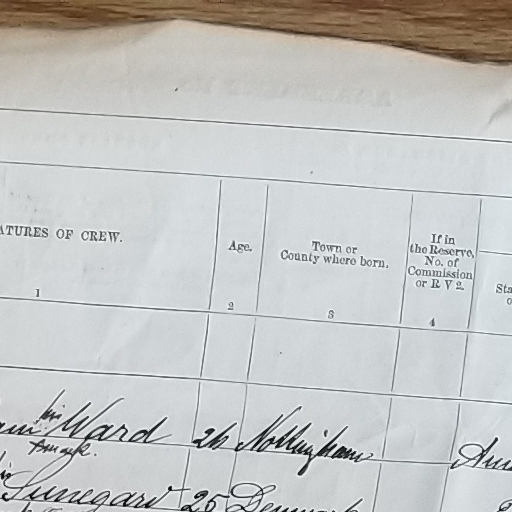 ATURES OF CREW.
Age.
Town or
County where born.
If in
the Reserve,
No. of
Commission
or R V 2.
Sta
1
2
3
4
his
Ward 26 Nottingham
mark.
25 Denmark